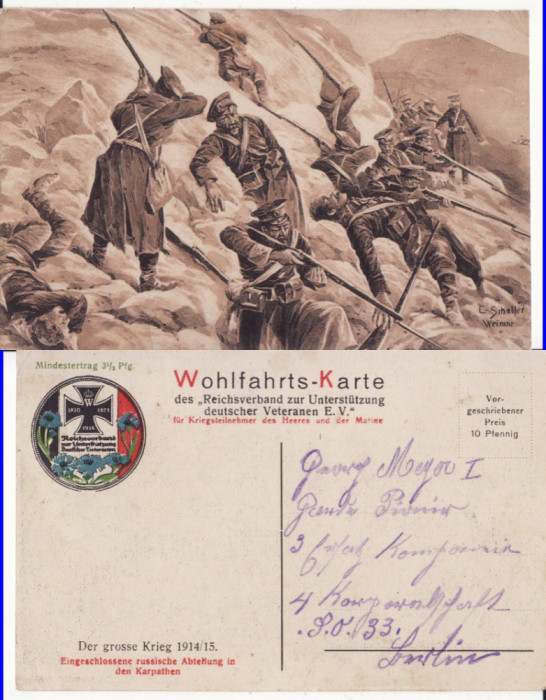 E. Schaller
Weimar
Mindestertrag 3½ Pfg.
Wohlfahrts-Karte
des „Reichsverband zur Unterstützung
deutscher Veteranen E. V."
für Kriegsteilnehmer des Heeres und der Marine
Vor-
geschriebener
Preis
10 Pfennig
W
1870 1871
1914
Reichsverband
zur Unterstützung
Deutscher Veteranen
Georg Meyer I
Garde Pionier
3 Ersatz Kompannie
4 Korporalschaft
S.O. 33.
Berlin
Der grosse Krieg 1914/15.
Eingeschlossene russische Abteilung in
den Karpathen